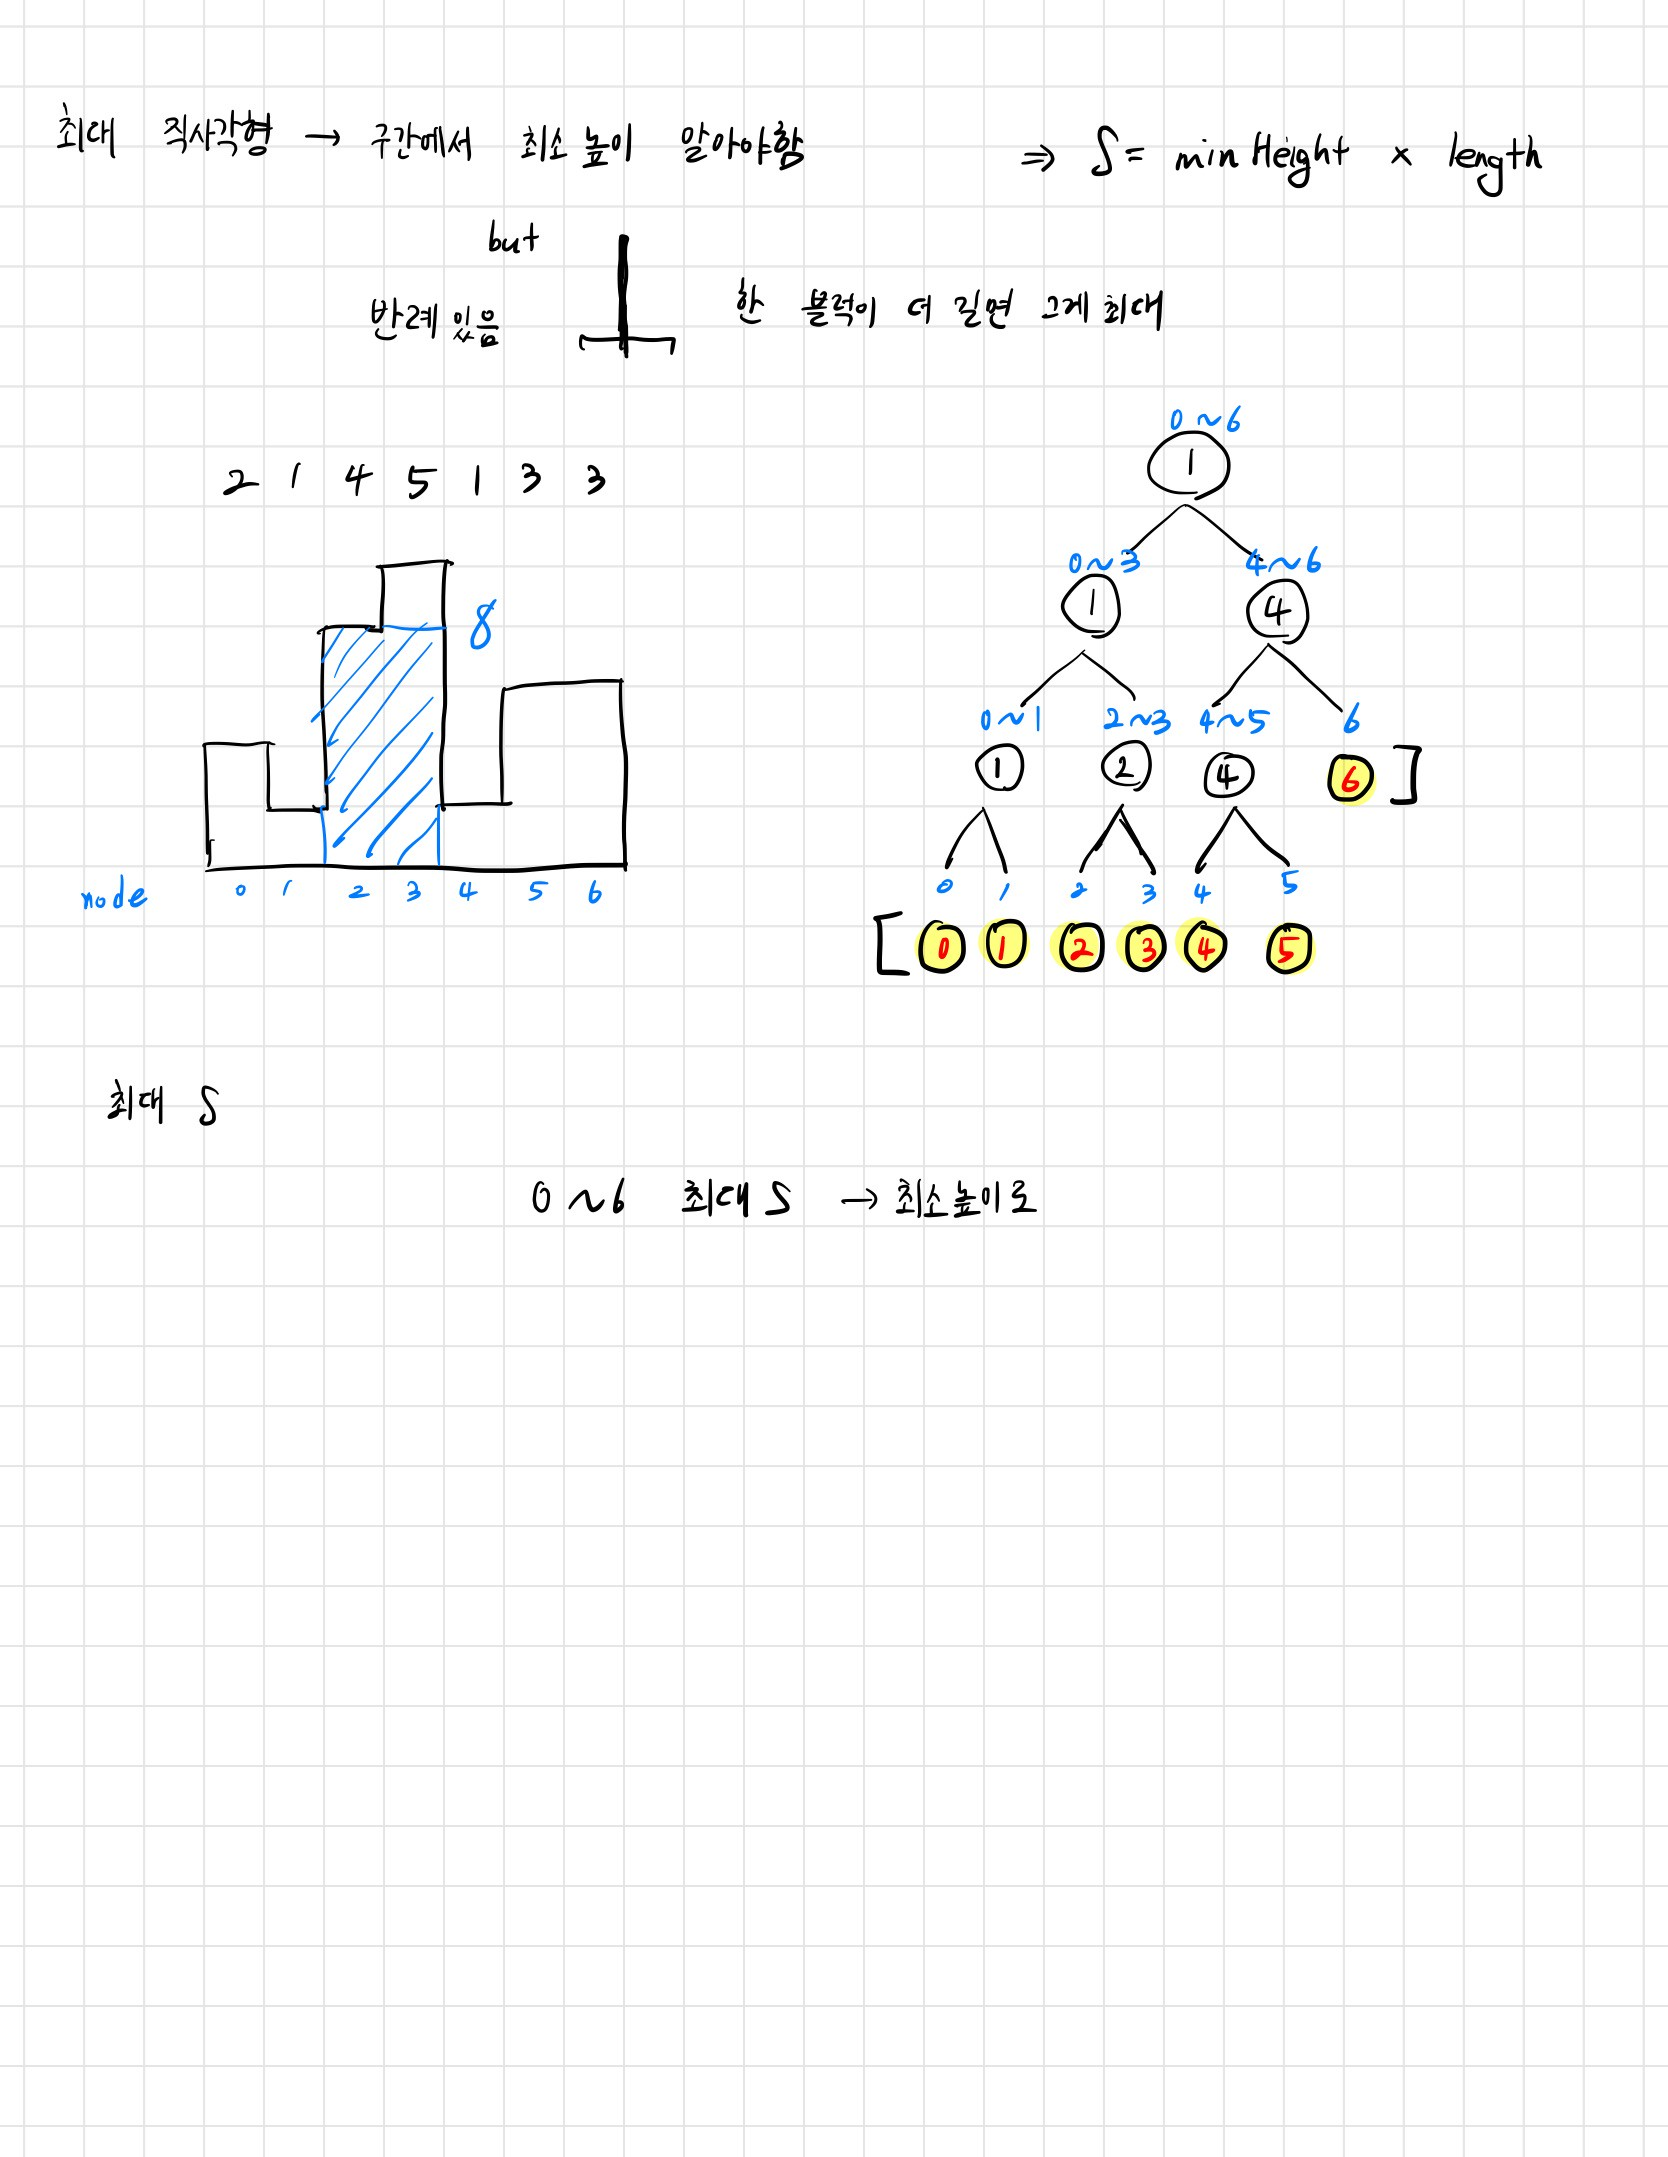 최대 직사각형 → 구간에서 최소 높이 알아야함 ⇒ S = min Height × length
but
반례 있음 한 블럭이 더 길면 그게 최대
2 1 4 5 1 3 3
8
node 0 1 2 3 4 5 6
0~6
1
0~3 4~6
1 4
0~1 2~3 4~5 6
1 2 4 6 ]
0 1 2 3 4 5
[ 0 1 2 3 4 5
최대 S
0~6 최대 S → 최소높이로